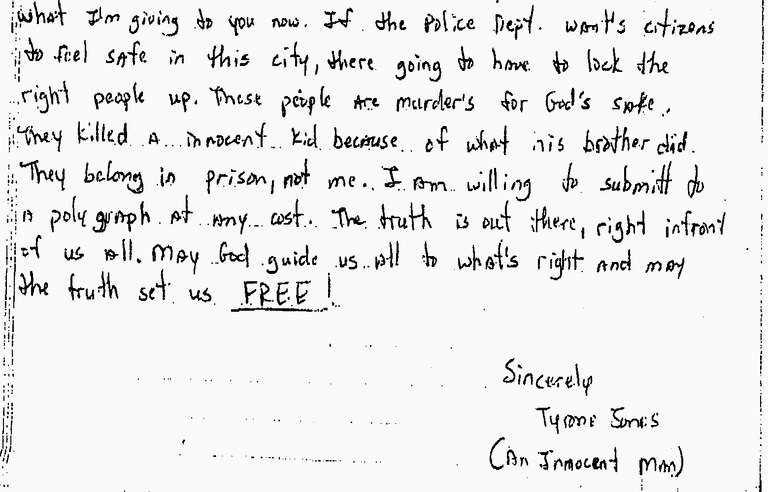 what I'm giving to you now. If the Police Dept. want's citizens
to feel safe in this city, there going to have to lock the
right people up. These people are murder's for God's sake.
They killed a innocent kid because of what his brother did.
They belong in prison, not me. I am willing to submitt to
a polygraph at any cost. The truth is out there, right infront
of us all. May God guide us all to what's right and may
the truth set us FREE!
Sincerely
Tyrone Jones
(An Innocent Man)